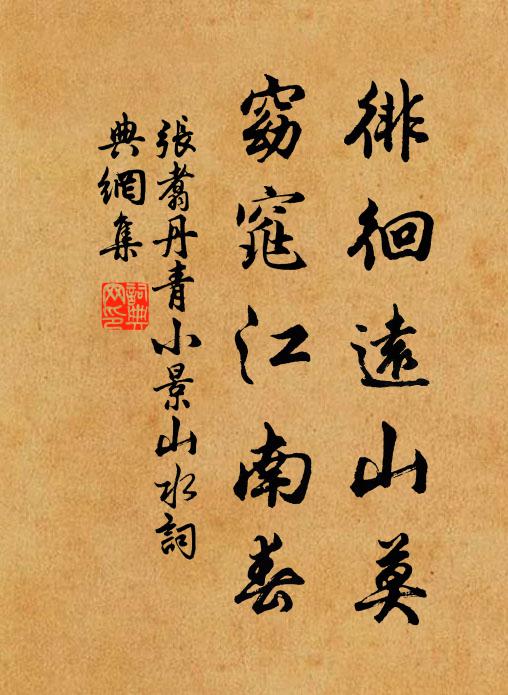 徘徊遠山莫
窈窕江南春
張翥丹青小景山水詞
典網集
詞典網印